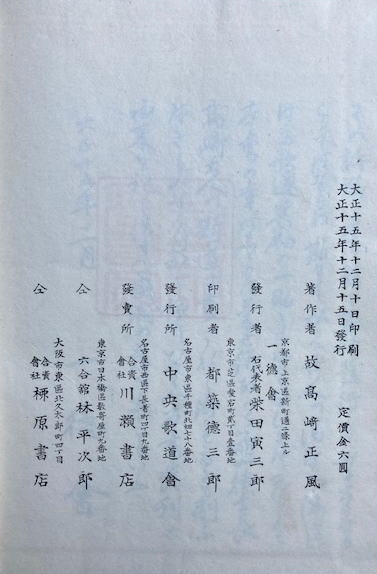 大正十五年十二月十日印刷
大正十五年十二月十五日發行
定價金六圓
著作者 故高崎正風
京都市上京區新町通二條上ル
一德會
發行者 右代表者柴田寅三郎
東京市芝區愛宕町貳丁目壹番地
印刷者 都築德三郎
名古屋市東區千種町北畑七十八番地
發行所 中央歌道會
名古屋市西區下長者町四丁目九番地
發賣所 合資會社 川瀨書店
東京市日本橋區數寄屋町九番地
仝 六合館林平次郎
大阪市東區北久太郎町四丁目
仝 合資會社 柳原書店